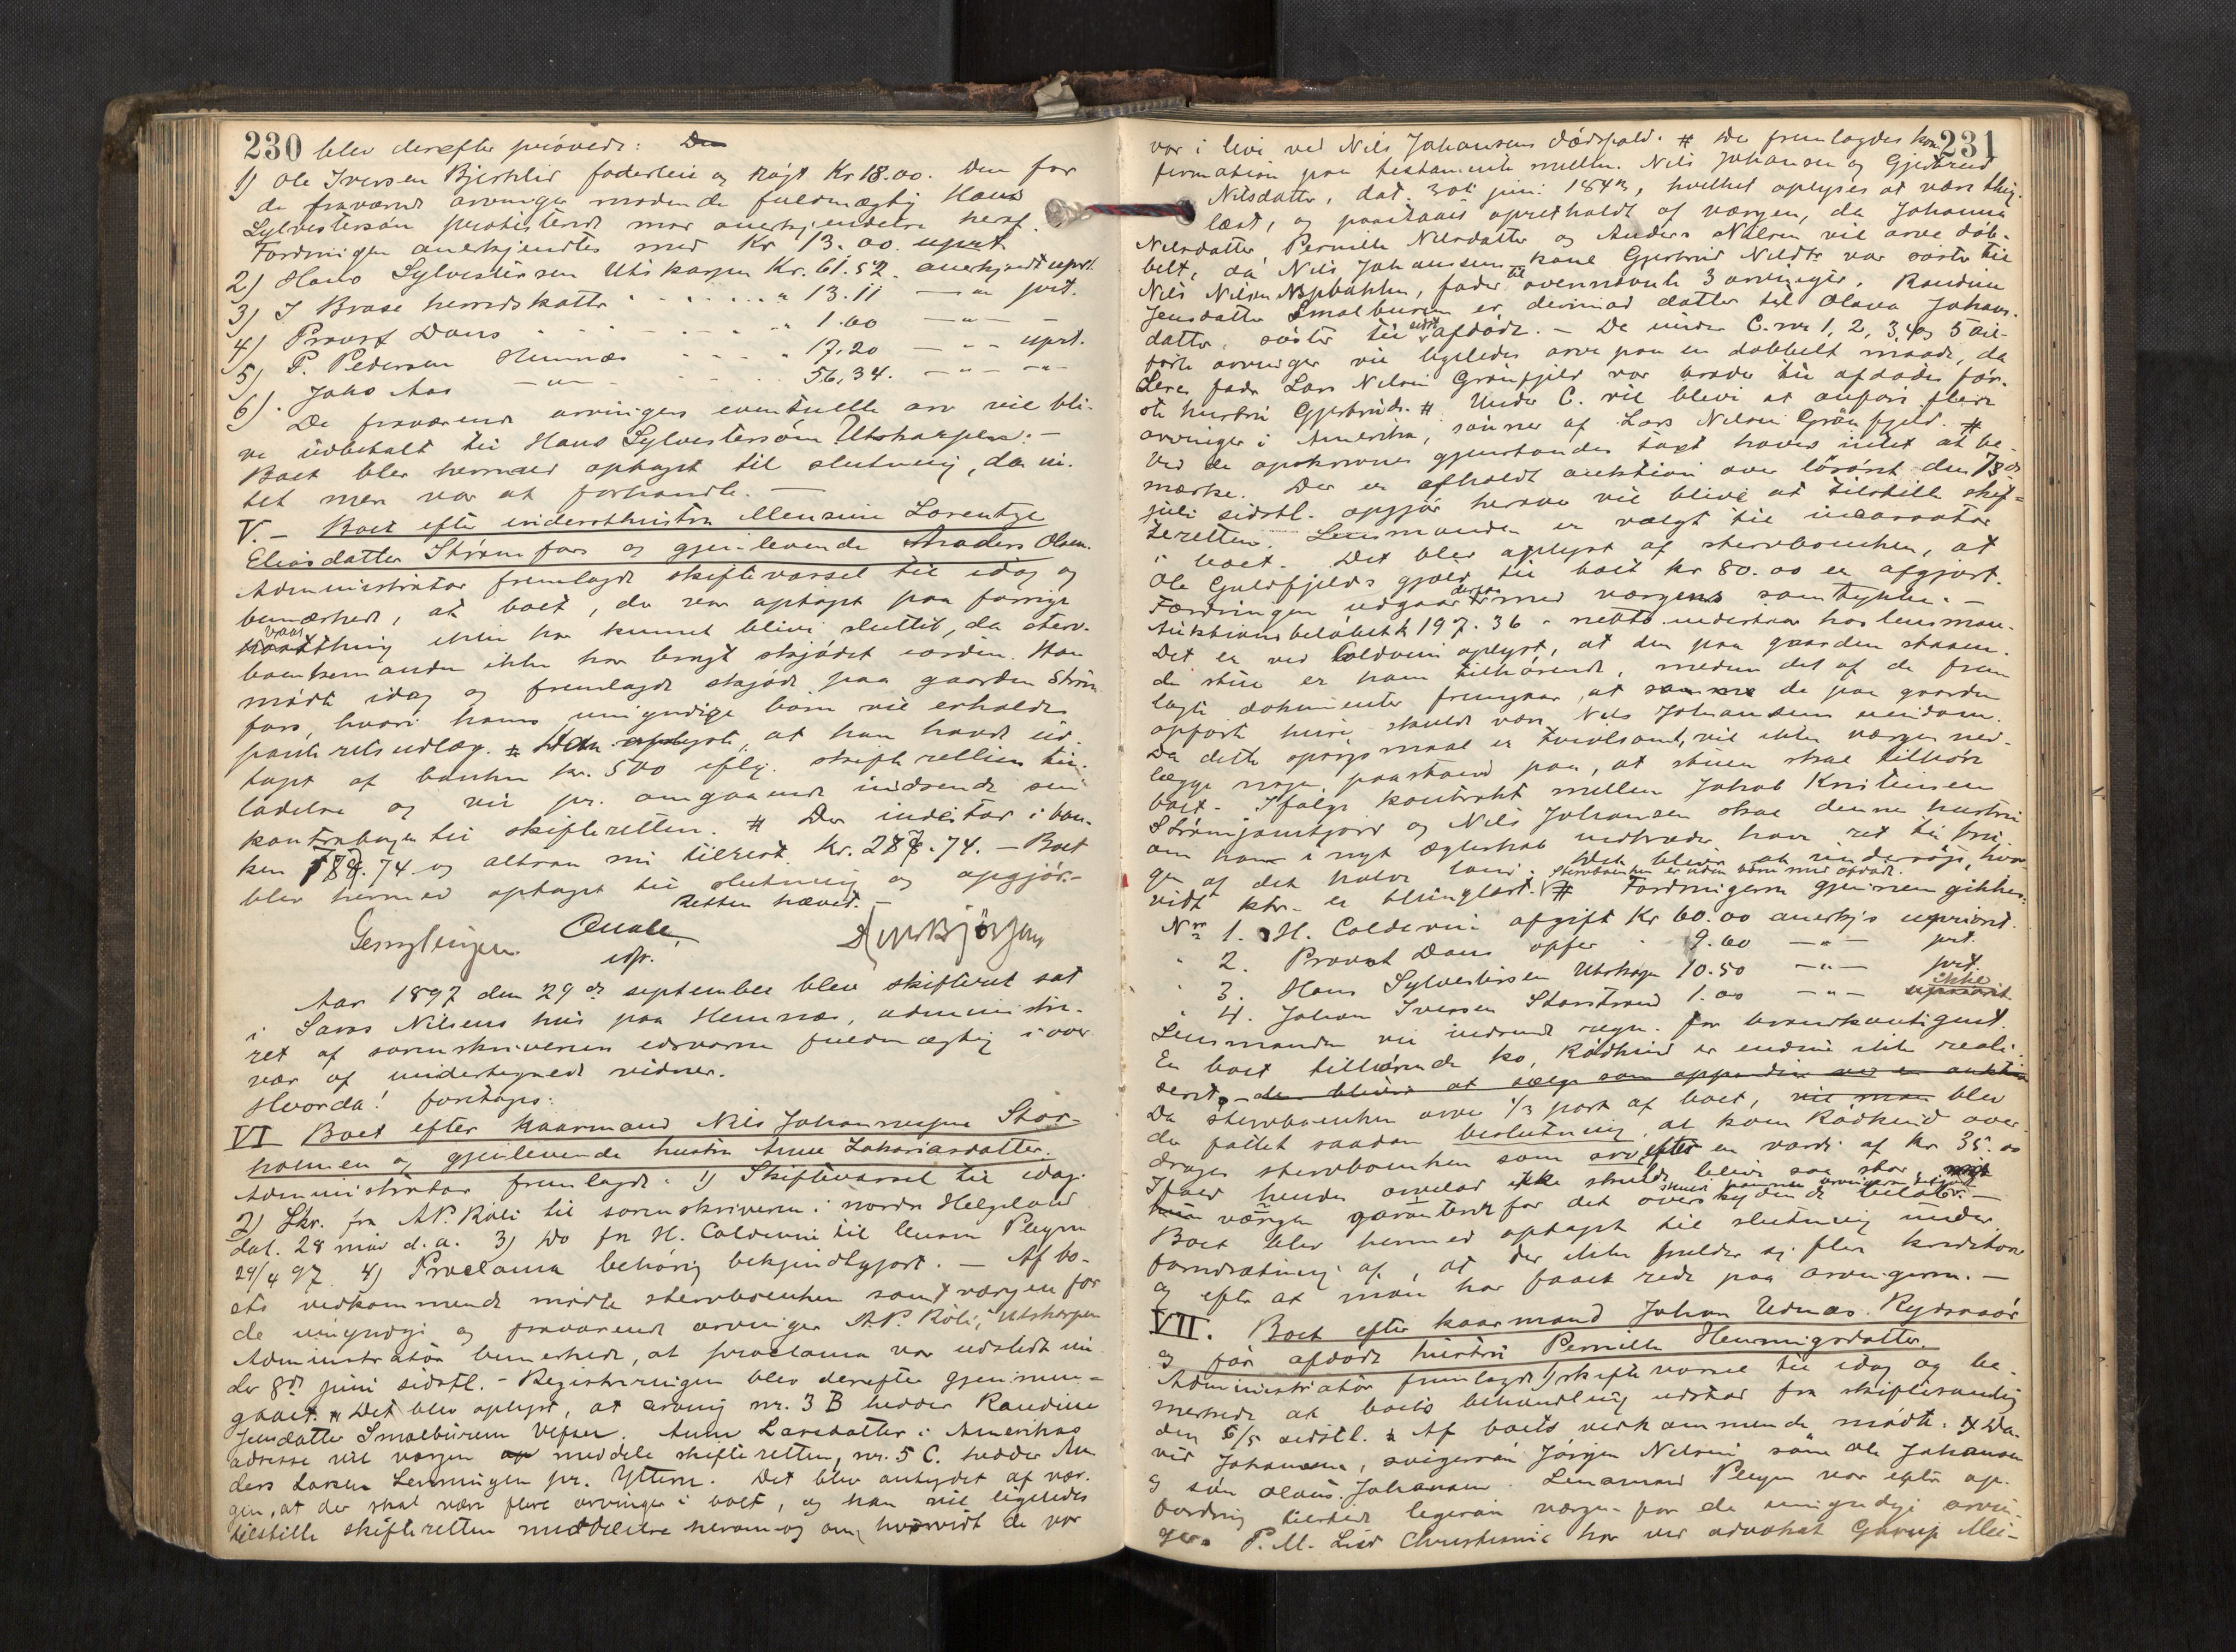 230 blev derefter prøvede:
1) Ole Iversen Bjerklid foderleie og Røgt Kr 18.00. Den for
de fraværende arvinger mødende fuldmægtig Hans
Sylvestersøn protesterede mod anerkjendelse heraf.
Fordringen anerkjendtes med Kr 13.00. uprt.
2) Hans Sylvestersen Utskarpen Kr. 61.52. anerkjendt uprt.
3) J Brose herredskatter " 13.11 — " — prt.
4) Provst Daus " 1.60 — " —
5) P. Pedersen Hemnæs 17.20 — " - uprt.
6) Jako Aas — " — 56,34. — " — — " —
De fraværende arvingers eventuelle arv vil bli-
ve udbetalt til Hans Sylvestersøn Utskarpen. —
Boet blev hermed optaget til slutning, da in-
tet mere var at forhandle. —
V. — Boet efter indersthustru Mensine Lorentze
Eliasdatter Strømfors og gjenlevende Anders Olsen.
Administrator fremlagde skiftevarsel til idag og
bemærkede, at boet, da sen optaget paa forrige
vaarthing ikke har kunnet blive sluttet, da sterv-
boenkemanden ikke har bragt skjødet iorden. Han
mødte idag og fremlagde skjøde paa gaarden Strøm-
fors, hvori hans umyndige barn vil erholde
panteretsudlæg. # Han oplyste, at han havde ud-
taget af banken kr. 500 iflg. skifterettens til-
ladelse og vil pr. omgaaende indsende sin
kontrabog til skifteretten. # Der indestaar i ban-
ken 787.74 og altsaa nu tilrest kr. 287.74. — Boet
blev hermed optaget til slutning og opgjør. —
Retten hævet. —
Qvale
Aar 1897 den 29de september blev skifteret sat
i Lavas Nilsens hus paa Hemnæs, administre-
ret af sorenskriverens edsvorne fuldmægtig i over-
vær af undertegnede vidner.
Hvorda! foretoges:
VI Boet efter kaarmand Nils Johannesen Stor-
holmen og gjenlevende hustru Anne Zakariasdatter.
Administrator fremlagde: 1) Skiftevarsel til idag.
2) Skr. fra A.P. Røli til sorenskriveren i nordre Helgeland
dat. 28 mai d.a. 3) Do fra H. Coldevin til lensm Pleym
29/4 97. 4) Proclama behørig bekjendtgjort. — Af bo-
ets vedkommende mødte stervboenken samt værgen for
de umyndige og fraværende arvinger A.P. Røli, Utskarpen
Administrator bemerkede, at proclama var udstedt un-
der 8de juni sidstl. - Registreringen blev derefter gjennem-
gaaet. # Det blev oplyst, at arving nr. 3 B hedder Randine
Jensdatter Smalburen Vefsen. Anne Larsdatter i Amerikas
adresse vil værgen meddele skifteretten, nr. 5 C. hedder An-
ders Larsen Lenningen pr. Yttern. Det blev antydet af vær-
gen, at der skal være flere arvinger i boet, og han vil ligeledes
tilstille skifteretten meddelelse herom og om, hvorvidt de var
231
var i live ved Nils Johansens dødsfald. # Der fremlagdes kon-
firmation paa testamente mellem Nils Johansen og Gjertrud
Nilsdatter, dat. 30te juni 1843, hvilket oplyses at være thing-
læst, og paastaaes opretholdt af værgen, da Johanna
Nilsdatter Pernille Nilsdatter og Anders Nilsen vil arve dob-
belt, da Nils Johansens kone Gjertrud Nildtr var søster til
Nils Nilsen, fader til ovennævnte 3 arvinger. Randine
Jensdatter Smalburen er derimod datter til Olava Johans-
datter, søster til sidst afdøde. — De under C. nr 1, 2, 3, 4 og 5 op-
førte arvinger vil ligeledes arve paa en dobbelt maade, da
deres fader Lars Nilsen Grønfjeld var broder til afdødes før-
ste hustru Gjertrud. # Under C. vil blive at anføre flere
arvinger i Amerika, sønner af Lars Nilsen Grønfjeld. #
Ved de opskrevne gjenstandes taxt havdes intet at be-
mærke. Der er afholdt auktion over løsøret den 13de
juli sidstl. opgjør herover vil blive at tilstille skif-
teretten. Lensmanden er valgt til incassator
i boet. Det blev oplyst af stervboenken, at
Ole Guldfjelds gjæld til boet kr 80.00 er afgjort.
Fordringen udgaar derfor med værgens samtykke. —
Auktionsbeløbet k 197.36 - netto indestaar hos lensman-
Det er ved Coldevin oplyst, at den paa gaarden staaen-
de stue er ham tilhørende, medens det af de frem
lagte dokumenter fremgaar, at samme de paa gaarden
opførte huse skulde være Nils Johansens eiendom.
Da dette spørgsmaal er tvivlsomt, vil ikke værgen ned-
lægge nogen paastand paa, at stuen skal tilhøre
boet. - Ifølge kontrakt mellem Jakob Kristensen
Strømjamtjord og Nils Johansen skal denne hustru
om han i nyt ægteskab indtræder have ret til bru-
gen af det halve land. Det bliver at undersøge, hvor-
vidt ktr. er thinglæst. # Fordringerne gjennemgikkes:
stervboenken er uden børn med afdøde.
Nr 1. H. Coldevin afgift Kr 60.00 anerkj's upriorit.
" 2. Provst Daus offer " 9.60 — " — prt.
" 3. Hans Sylvestersen Utskarpen 10.50 — " — prt.
" 4. Johan Iversen Storstrand 1.00 — " — ikke
Lensmanden vil indsende regn. for brandkontigent.
En boet tilhørende ko, Rødkind er endnu ikke reali-
seret, den bliver at sælge som
Da stervboenken arver 1/3 part af boet, vil man blev
der fattet saadan beslutning, at koen Rødkind over-
drages stervboenken som arv efter en værdi af Kr 35.00
Ifald hendes arvelod ikke skulde blive saa stor,
værgen garanterede for det overskydende beløb. —
Boet blev hermed optaget til slutning under
forudsætning af, at der ikke melder sig flere kreditorer
og efter at man har faaet rede paa arvingerne. —
VII. Boet efter kaarmand Johan Udnæs Rydsaaør
og før afdøde hustru Pernille Henningsdatter.
Administrator fremlagde 1) skiftevarsel til idag og be-
merkede at boets behandling udstod fra skiftesamling
den 6/5 sidstl. # Af boets vedkommende mødte: Da-
vid Johansen, svigersøn Jørgen Nilsen, søn Ole Johansen
og søn Olaus Johansen. Lensmand Pleym var efter op-
fordring tilstede ligesaa værge for de umyndige arvin-
ger. P.M. Lied Christiania har ved advokat Gjørup Mei-